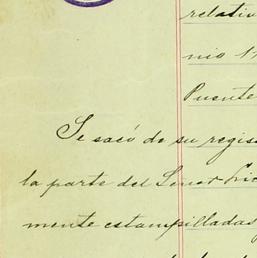 relativ
nio 1
Puente
Se sacó de su regis
la parte del Señor Lic
mente estampilladas